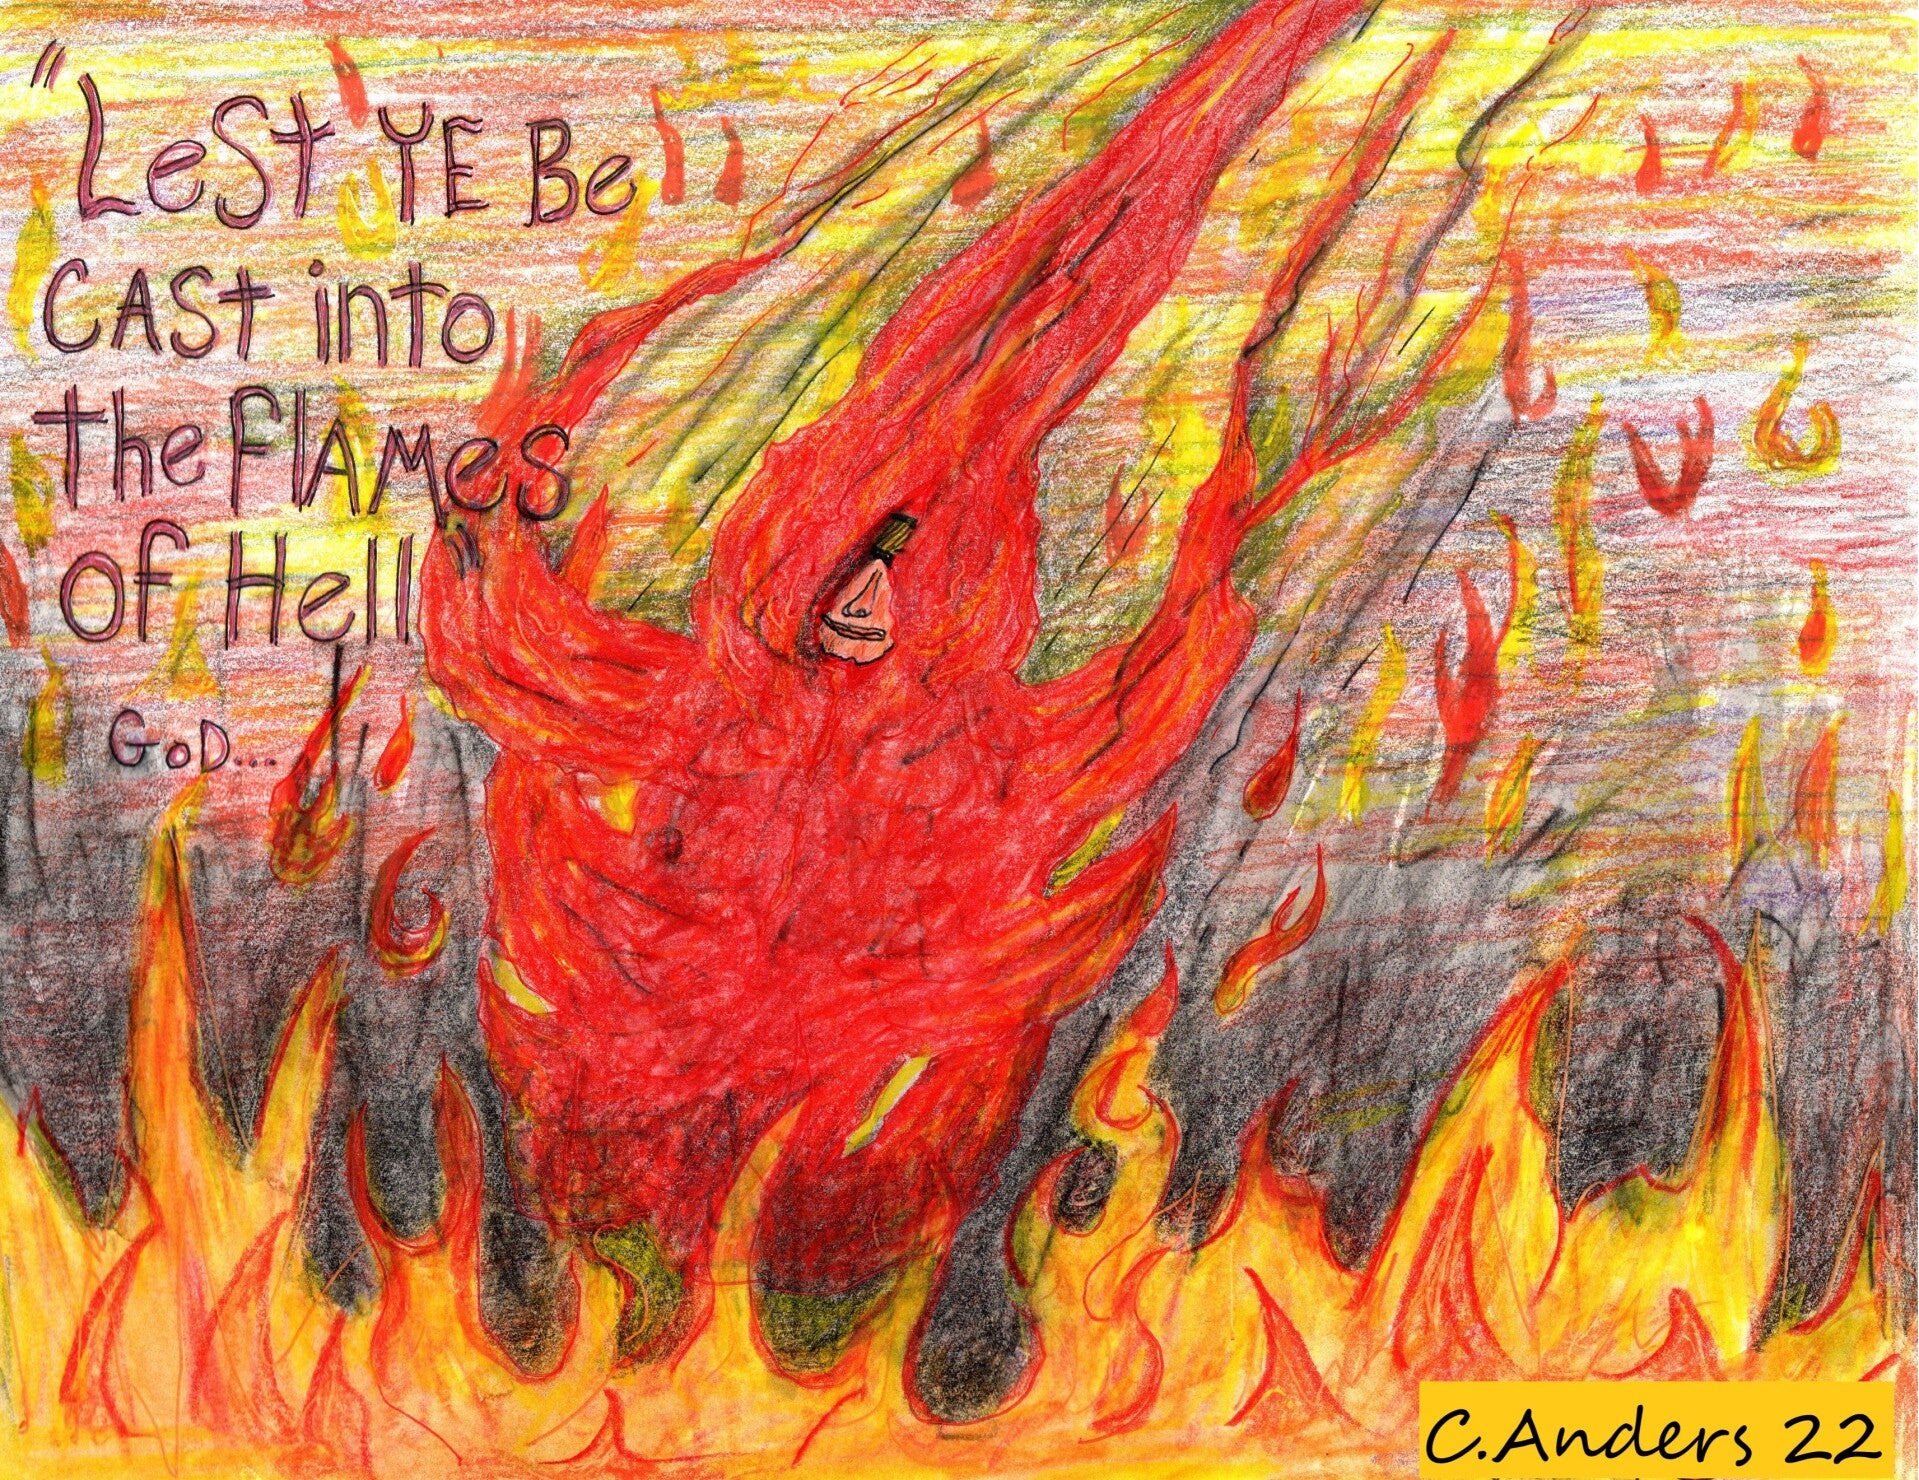 "LeSt YE Be
CASt into
the FlAMeS
of Hell"
GoD...
C.Anders 22